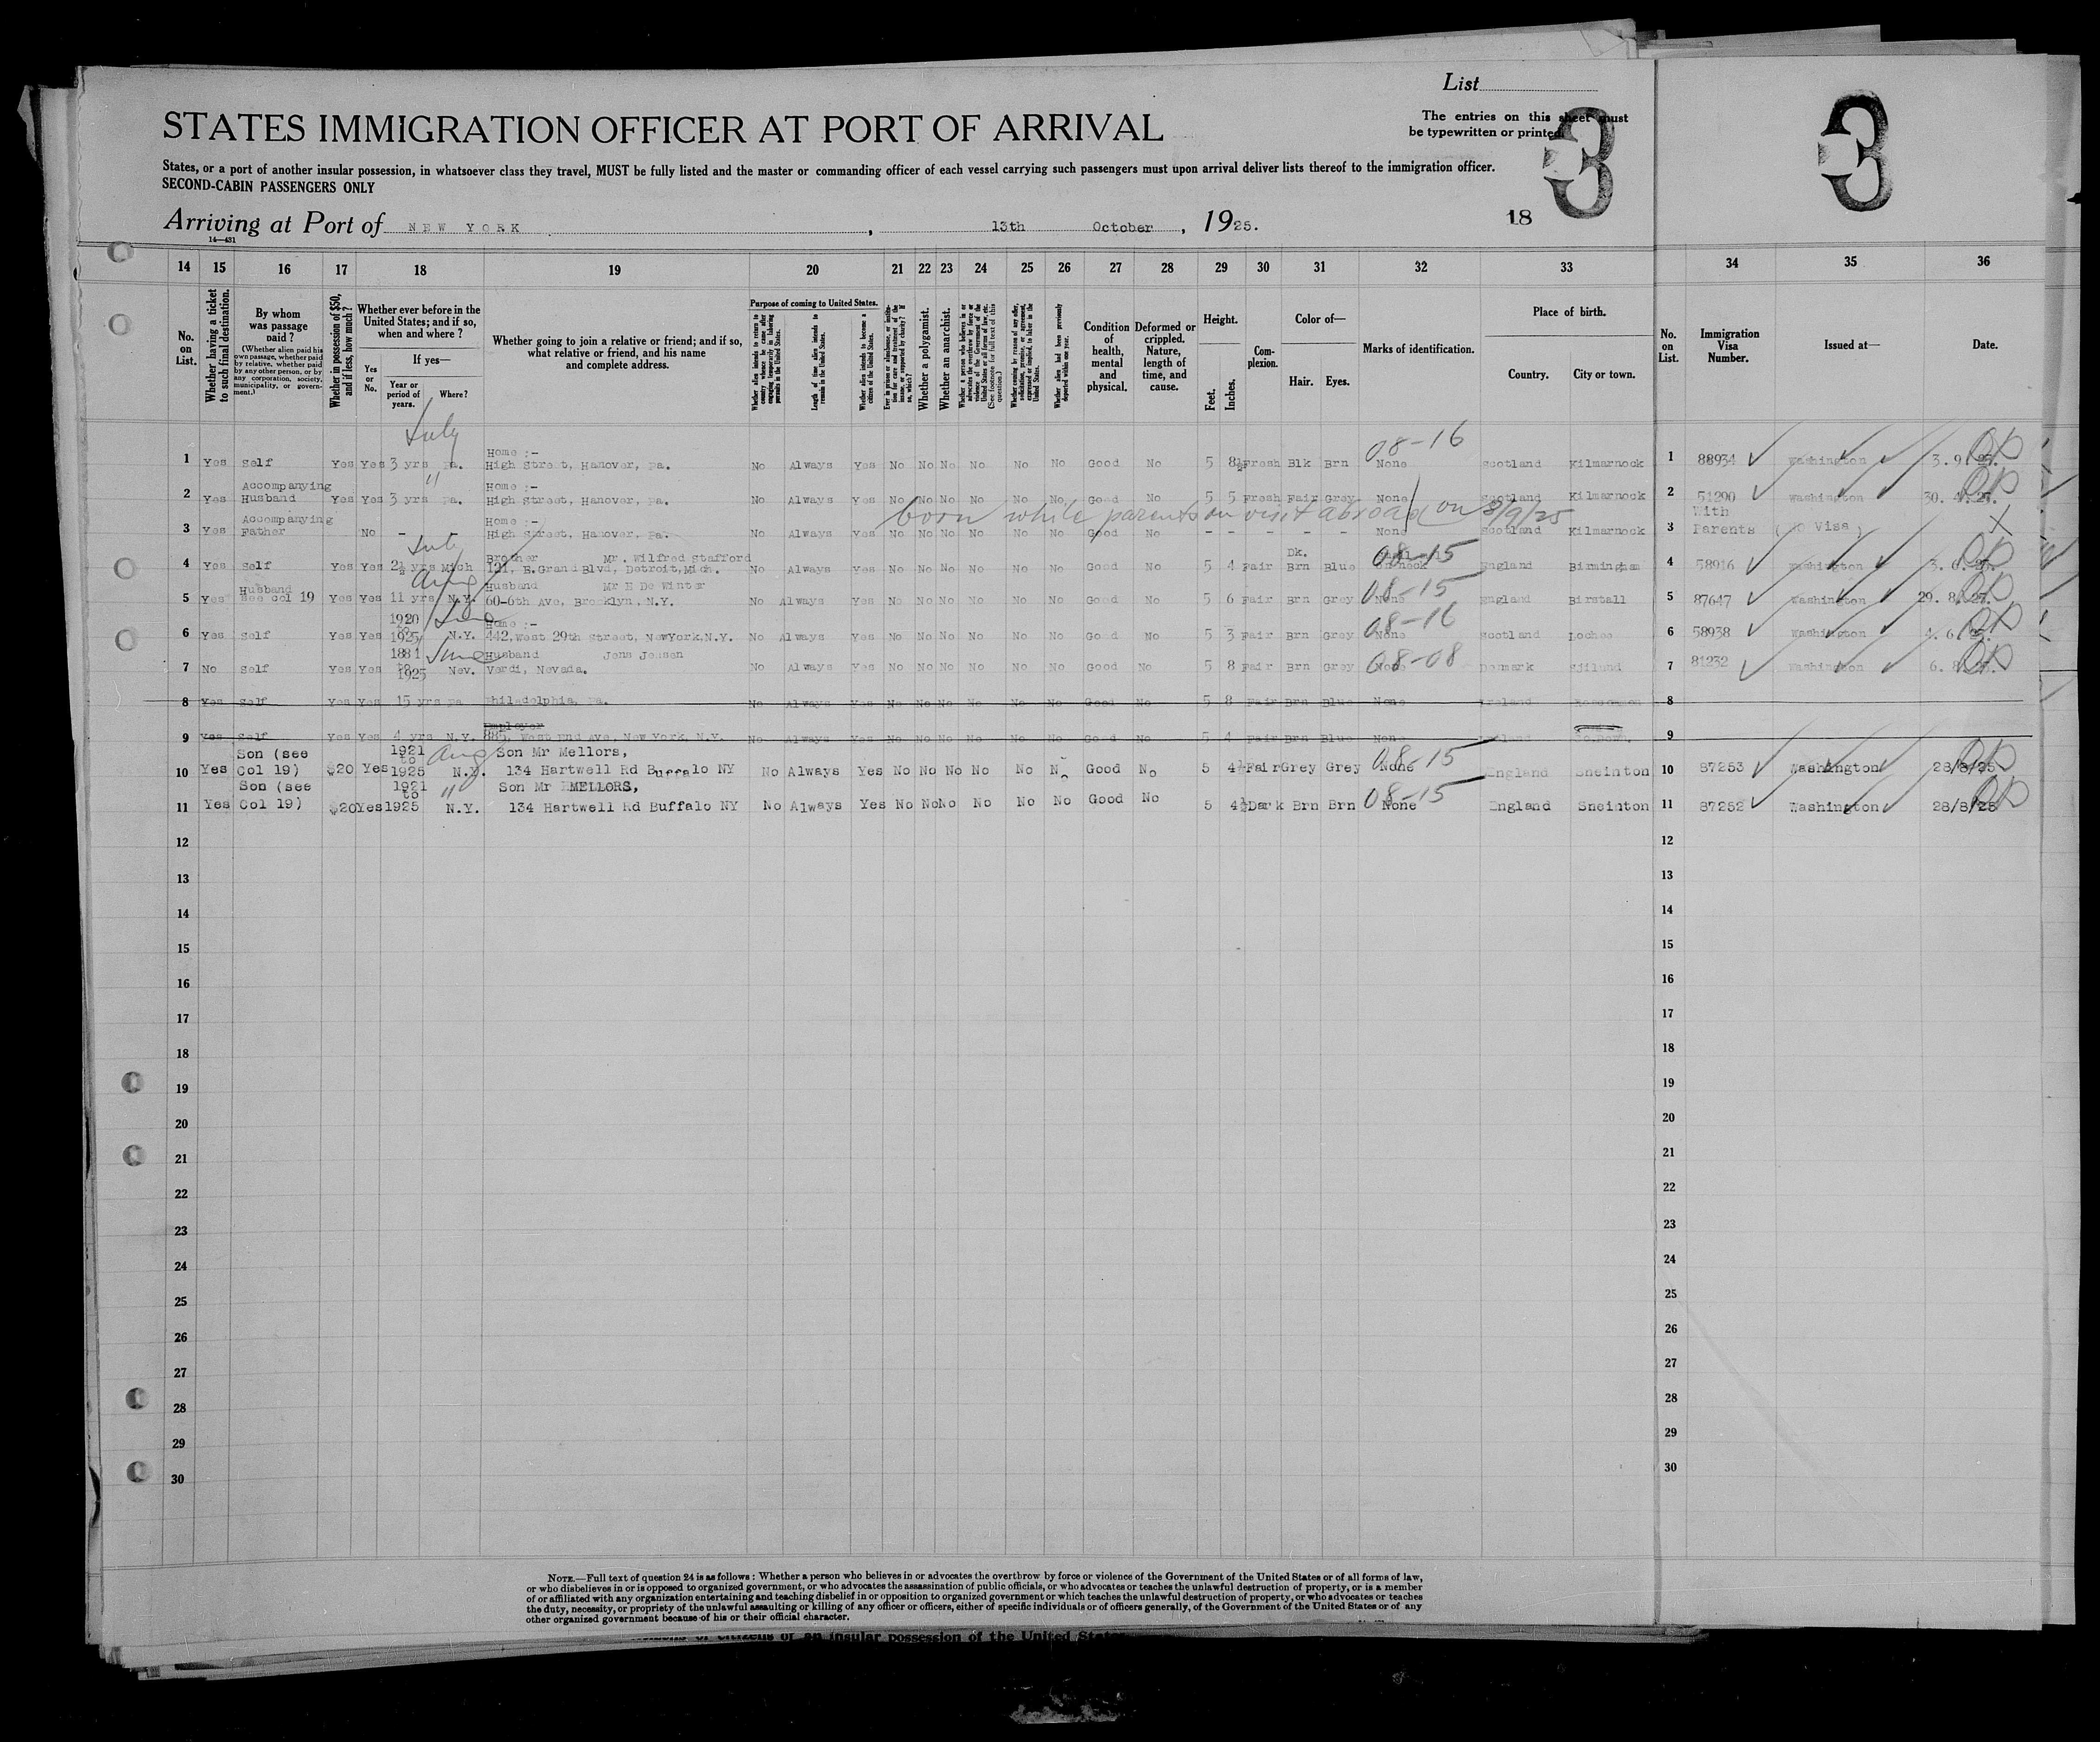 List
STATES IMMIGRATION OFFICER AT PORT OF ARRIVAL
The entries on this sheet must
be typewritten or printed
3
3
States, or a port of another insular possession, in whatsoever class they travel, MUST be fully listed and the master or commanding officer of each vessel carrying such passengers must upon arrival deliver lists thereof to the immigration officer.
SECOND-CABIN PASSENGERS ONLY
Arriving at Port of NEW YORK, 13th October, 1925.
18
14—431
14 15 16 17 18 19 20 21 22 23 24 25 26 27 28 29 30 31 32 33 34 35 36
No. on List.
Whether having a ticket to such final destination.
By whom was passage paid?
(Whether alien paid his own passage, whether paid by relative, whether paid by any other person, or by any corporation, society, municipality, or government.)
Whether in possession of $50, and if less, how much?
Whether ever before in the United States; and if so, when and where?
If yes—
Yes or No.
Year or period of years.
Where?
Whether going to join a relative or friend; and if so, what relative or friend, and his name and complete address.
Purpose of coming to United States.
Length of time alien intends to remain in the United States.
Whether alien intends to become a citizen of the United States.
Whether a polygamist.
Whether an anarchist.
Condition of health, mental and physical.
Deformed or crippled. Nature, length of time, and cause.
Height.
Feet.
Inches.
Complexion.
Color of—
Hair. Eyes.
Marks of identification.
Place of birth.
Country. City or town.
No. on List.
Immigration Visa Number.
Issued at—
Date.
July 08-16
Home :-
1 Yes Self Yes Yes 3 yrs Pa. High Street, Hanover, Pa. No Always Yes No No No No No No Good No 5 8½ Fresh Blk Brn None Scotland Kilmarnock 1 88934 Washington 3. 9. 25. OK
Accompanying " Home :-
2 Yes Husband Yes Yes 3 yrs Pa. High Street, Hanover, Pa. No Always Yes No No No No No No Good No 5 5 Fresh Fair Grey None Scotland Kilmarnock 2 51290 Washington OK
born while parents on visit abroad on 8/9/25
Accompanying Home :- With
3 Yes Father No - - High Street, Hanover, Pa. No Always Yes No No No No No No Good No - - - - - None Scotland Kilmarnock 3 Parents (No Visa) X
Brother Mr. Wilfred Stafford Dk. 08-15
4 Yes Self Yes Yes 2½ yrs Mich 121, E.Grand Blvd, Detroit, Mich. No Always Yes No No No No No No Good No 5 4 Fair Brn Blue England Birmingham 4 58916 Washington OK
Aug Husband Husband Mr E De Winter 08-15
5 Yes see col 19 Yes Yes 11 yrs N.Y. 60-6th Ave, Brooklyn, N.Y. No Always Yes No No No No No No Good No 5 6 Fair Brn Grey None England Birstall 5 87647 Washington 29. 8. 25. OK
1920 to Home :- 08-16
6 Yes Self Yes Yes 1925 N.Y. 442, West 29th Street, NewYork, N.Y. No Always Yes No No No No No No Good No 5 3 Fair Brn Grey None Scotland Lochee 6 58938 Washington OK
1881 to June Husband Jens Jensen 08-08
7 No Self Yes Yes 1925 Nev. Verdi, Nevada. No Always Yes No No No No No No Good No 5 8 Fair Brn Grey None Denmark Sjilund 7 81232 Washington OK
8 Yes Self Yes Yes 15 yrs Pa Philadelphia, Pa. No Always Yes No No No No No No Good No 5 8 Fair Brn Blue None Ireland 8
Employer
9 Yes Self Yes Yes 4 yrs N.Y. 885, West End Ave, New York, N.Y. No Always Yes No No No No No No Good No 5 4 Fair Brn Blue None 9
Son (see 1921 to Aug Son Mr Mellors, 08-15
10 Yes Col 19) $20 Yes 1925 N.Y. 134 Hartwell Rd Buffalo NY No Always Yes No No No No No No Good No 5 4½ Fair Grey Grey None England Sneinton 10 87253 Washington 28/8/25 OK
Son (see 1921 to " Son Mr MELLORS, 08-15
11 Yes Col 19) $20 Yes 1925 N.Y. 134 Hartwell Rd Buffalo NY No Always Yes No No No No No No Good No 5 4½ Dark Brn Brn None England Sneinton 11 87252 Washington 28/8/25 OK
12 12
13 13
14 14
15 15
16 16
17 17
18 18
19 19
20 20
21 21
22 22
23 23
24 24
25 25
26 26
27 27
28 28
29 29
30 30
NOTE.—Full text of question 24 is as follows: Whether a person who believes in or advocates the overthrow by force or violence of the Government of the United States or of all forms of law,
or who disbelieves in or is opposed to organized government, or who advocates the assassination of public officials, or who advocates or teaches the unlawful destruction of property, or is a member
of or affiliated with any organization entertaining and teaching disbelief in or opposition to organized government or which teaches the unlawful destruction of property, or who advocates or teaches
the duty, necessity, or propriety of the unlawful assaulting or killing of any officer or officers, either of specific individuals or of officers generally, of the Government of the United States or of any
other organized government because of his or their official character.
citizens of an insular possession of the United States